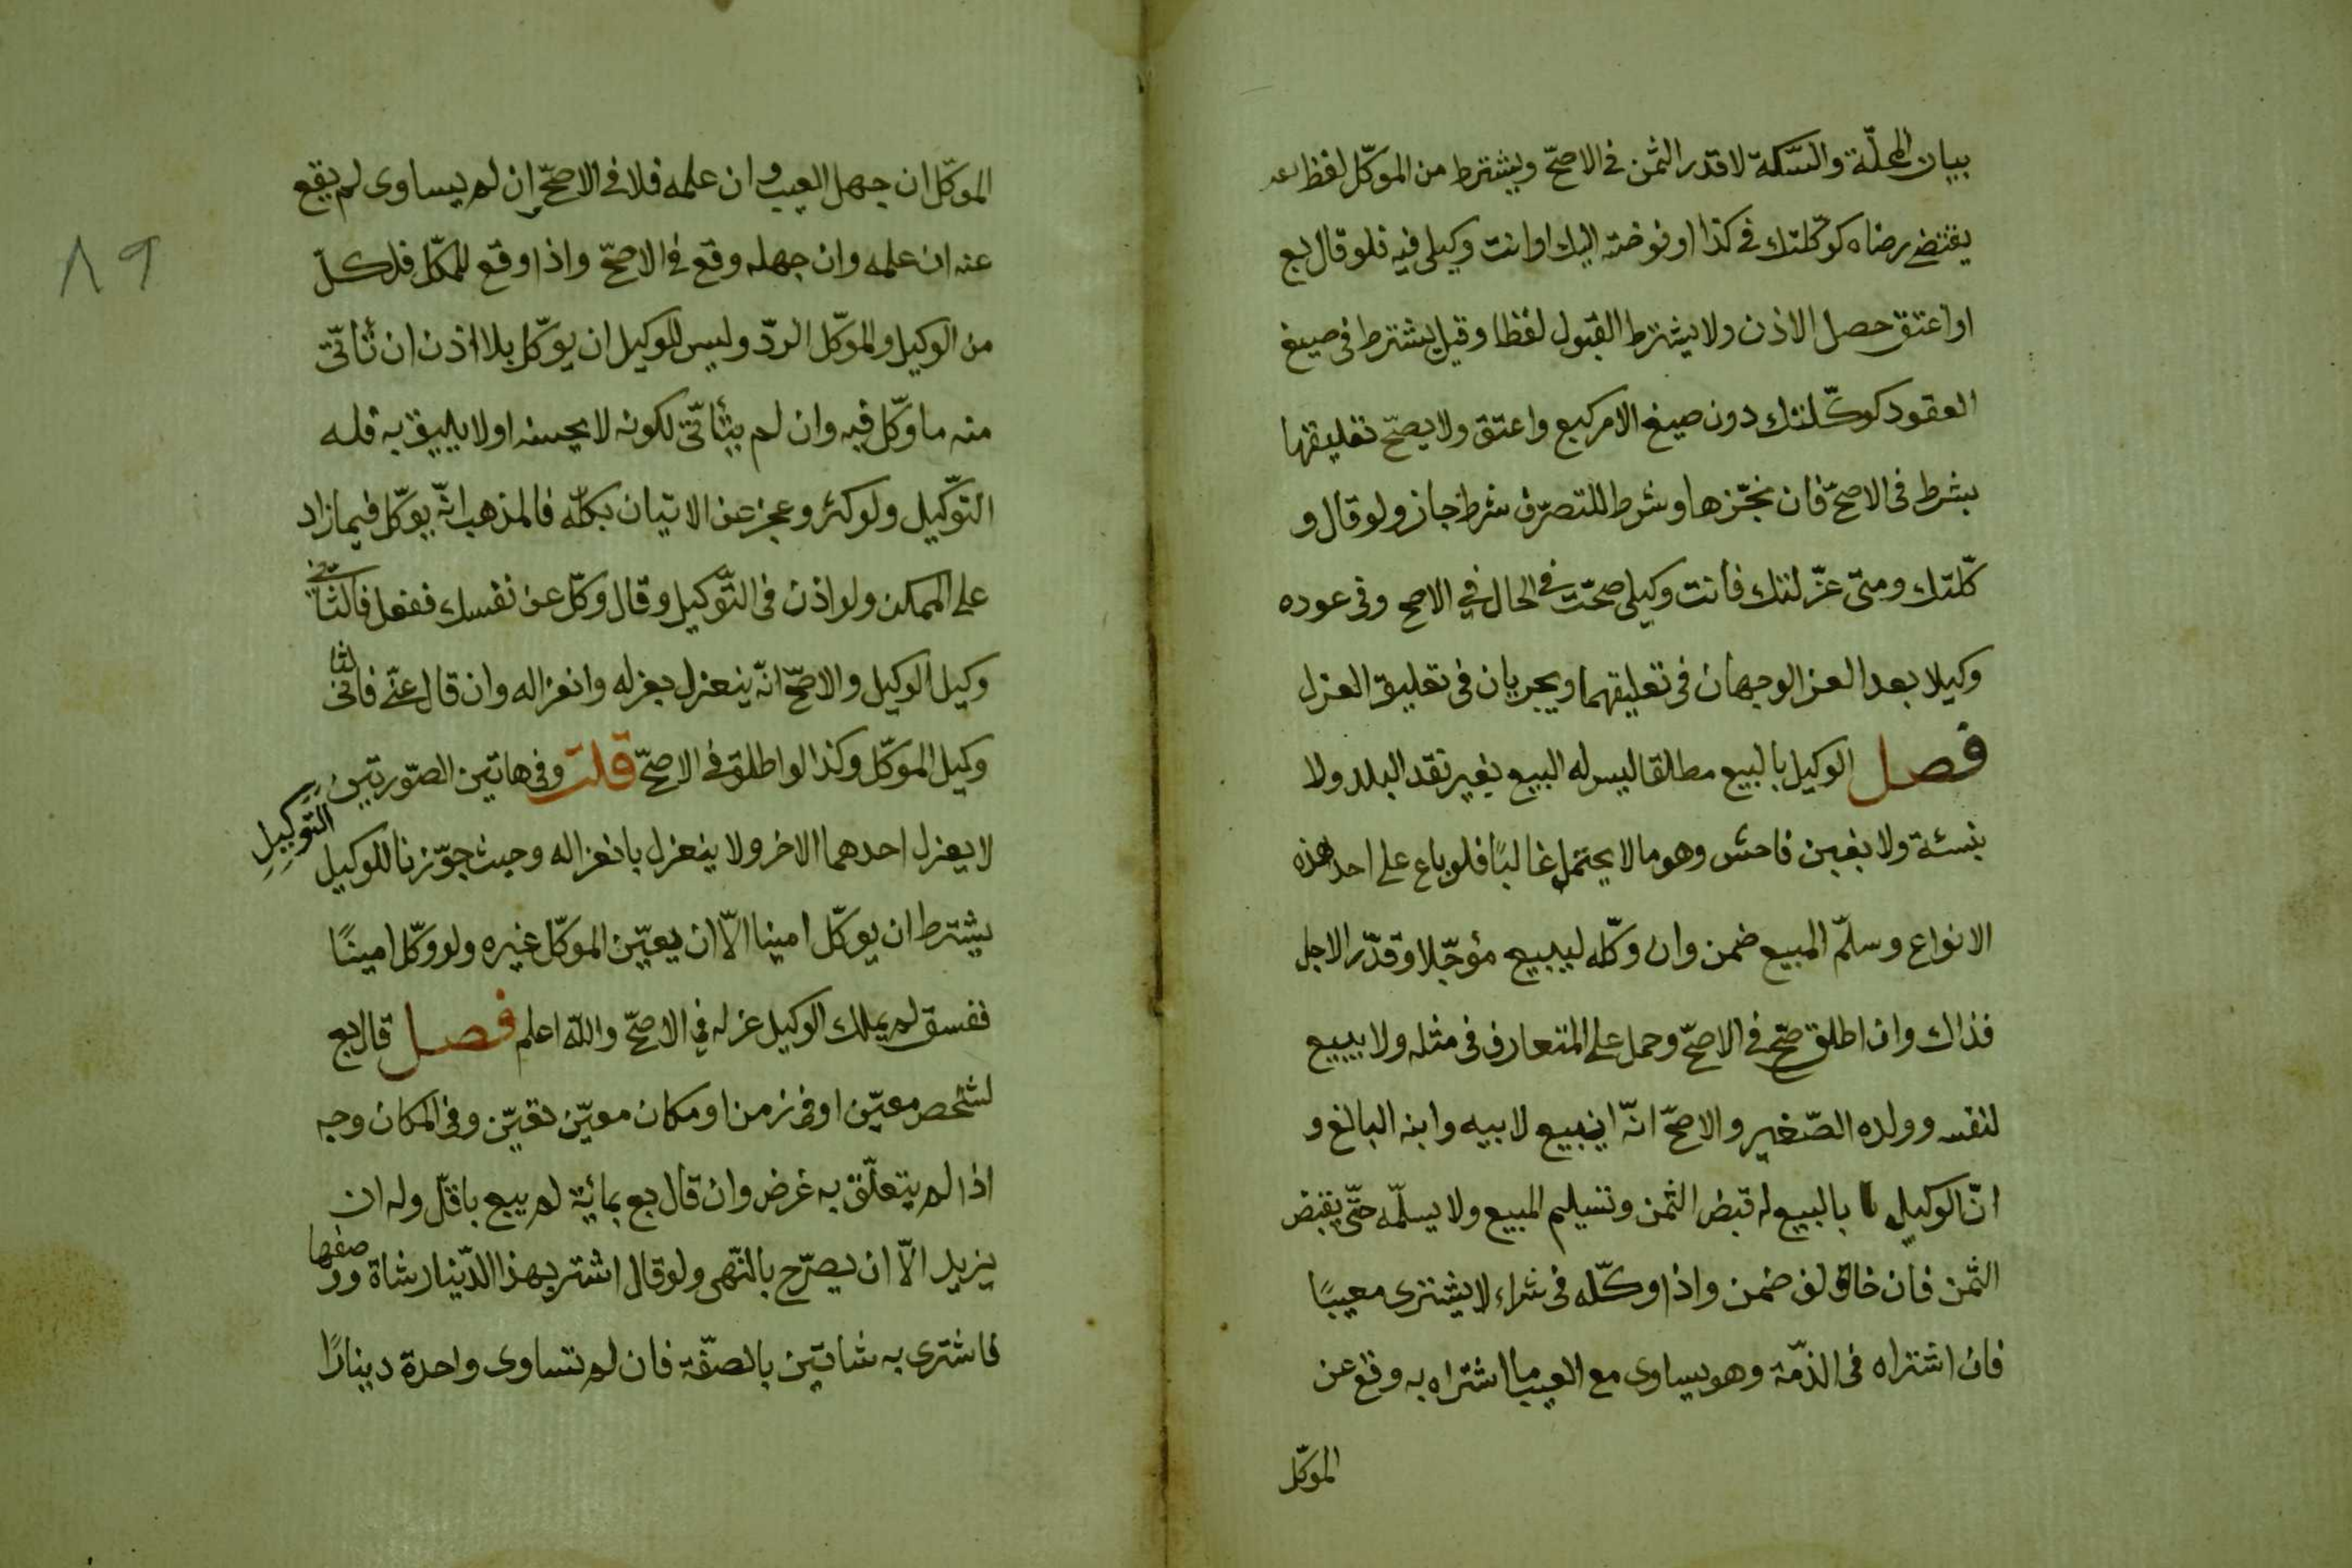 بيان المحلّة والسّكة لا قدر الثمن فى الاصحّ ويشترط من الموكّل لفظ
يقتضى رضاه كوكّلتك فى كذا او فوضته اليك او انت وكيلى فيه فلو قال بع
او اعتق حصل الاذن ولا يشترط القبول لفظا وقيل يشترط فى صيغ
العقود كوكّلتك دون صيغ الامر كبع واعتق ولا يصحّ تعليقها
بشرط فى الاصحّ فان نجّزها وشرط للتصرّف شرط جاز ولو قال و
كّلتك ومتى عزّلتك فانت وكيلى صحّت فى الحال فى الاصح وفى عوده
وكيلا بعد العز الوجهان فى تعليقهما ويجريان فى تعليق العزل
فصل الوكيل بالبيع مطالقا ليس له البيع بغير نقد البلد ولا
بنسئة ولا بغبن فاحش وهو ما لا يحتمل غالبًا فلو باع على احد هذه
الانواع وسلّم المبيع ضمن وان وكّله ليبيع مؤجّلا وقدّر الاجل
فذاك وان اطلق صحّ فى الاصحّ وحمل على المتعارف فى مثله ولا يبيع
لنفسه وولده الصّغير والاصحّ انّه يبيع لابيه وابنه البالغ و
انّ الوكيل بالبيع له قبض الثمن وتسليم المبيع ولا يسلّمه حتّى يقبض
الثمن فان خالف ضمن واذا وكّله فى شراء لا يشترى معيبًا
فان اشتراه فى الذمّة وهو يساوى مع العيب ما اشتراه به وقع عن
الموكّل
٨٩
الموكّل ان جهل العيب وان علمه فلا فى الاصحّ وان لم يساوى لم يقع
عنه ان علمه وان جهله وقع فى الاصحّ واذا وقع للمكّل فلكلّ
من الوكيل والموكّل الردّ وليس للوكيل ان يوكّل بلا اذن ان تأتّى
منه ما وكّل فيه وان لم يتأتّى لكونه لا يحسنه او لا يليق به فله
التوّكيل ولو كثر وعجز عن الاتيان بكلّه فالمذهب انّه يوكّل فيما زاد
على الممكن ولو اذن فى التوّكيل وقال وكّل عن نفسك ففعل فالثّانى
وكيل الوكيل والاصحّ انّه ينعزل بعزله وانعزاله وان قال عنّى فالثانى
وكيل الموكّل وكذا لو اطلق فى الاصحّ قلت وفى هاتين الصّورتين
لا يعزل احدهما الاخر ولا ينعزل بانعزاله وحيث جوّزنا للوكيل التّوكيل
يشترط ان يوكّل امينا الّا ان يعيّن الموكّل غيره ولو وكّل امينًا
ففسق لم يملك الوكيل عزله فى الاصحّ والله اعلم فصل قال بع
لشخص معيّن او فى زمن او مكان معيّن تعيّن وفى المكان وجه
اذا لم يتعلّق به غرض وان قال بع بمائة لم يبع باقلّ وله ان
يزيد الّا ان يصرّح بالنّهى ولو قال اشتر بهذا الدّينار شاة ووصفها
فاشترى به شاتين بالصفّة فان لم تساوى واحدة دينارًا